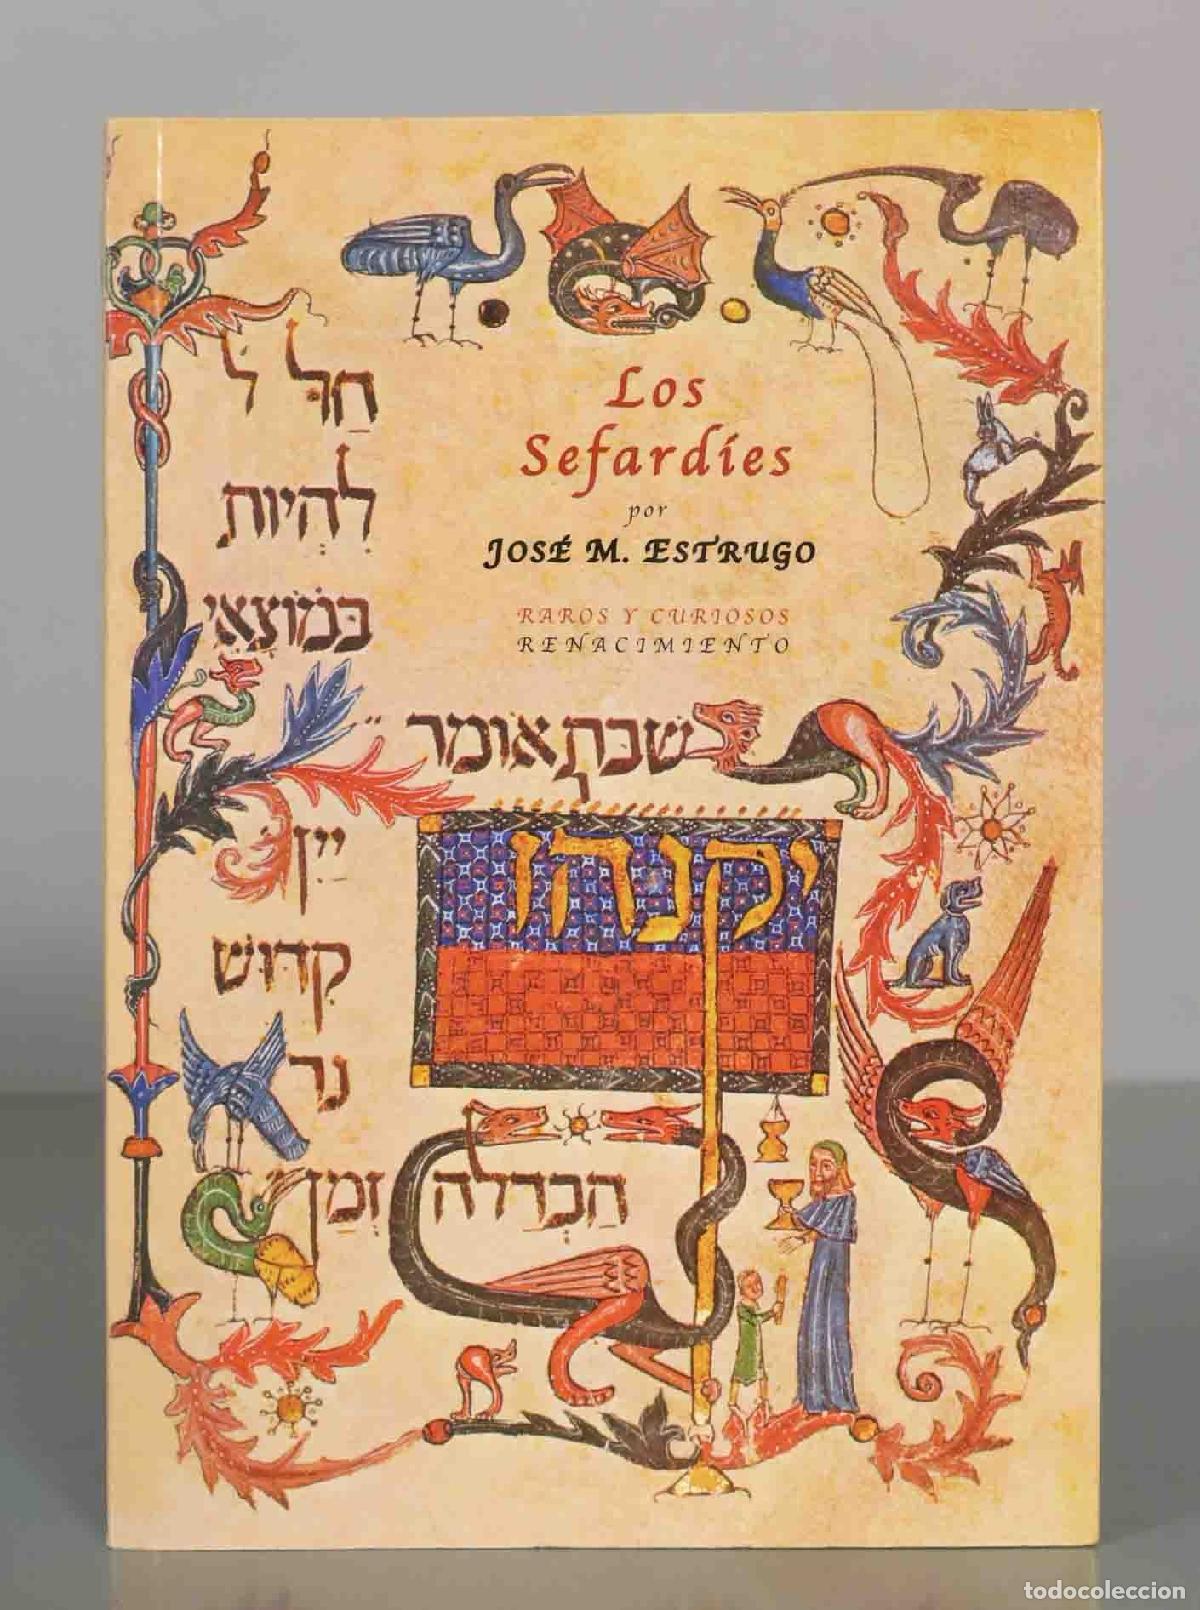 Los
Sefardíes
por
JOSÉ M. ESTRUGO
RAROS Y CURIOSOS
RENACIMIENTO
חַל לֹ
לִהְיוֹת
בְּמוֹצָאֵי
שַׁבָּת אוֹמֵר
יקנהז
יַיִן
קִדּוּשׁ
נֵר
הַבְדָּלָה זְמַן
todocoleccion